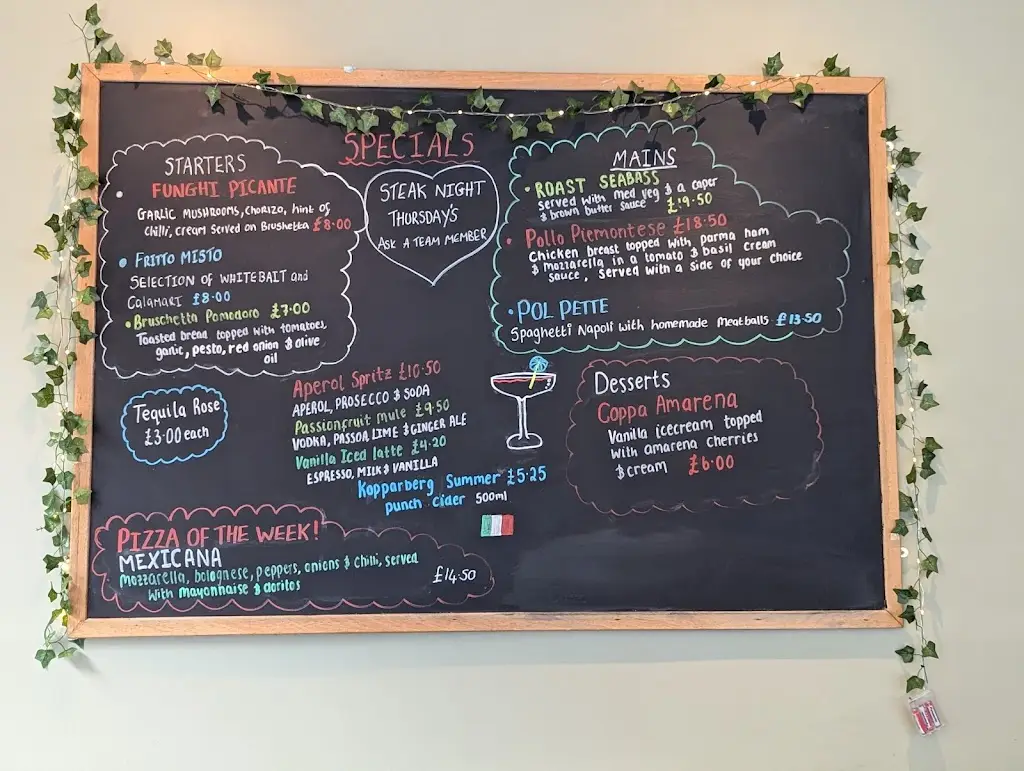 SPECIALS
STARTERS
FUNGHI PICANTE
GARLIC MUSHROOMS, CHORIZO, hint of
chilli, cream Served on Brushetta £8.00
• FRITTO MISTO
SELECTION OF WHITEBAIT and
Calamari £8.00
• Bruschetta Pomodoro £7.00
Toasted bread topped with tomatoes,
garlic, pesto, red onion & olive
oil
STEAK NIGHT
THURSDAY'S
ASK A TEAM MEMBER
MAINS
• ROAST SEABASS
served with med veg & a caper
& brown butter sauce £19.50
• Pollo Piemontese £18.50
Chicken breast topped with parma ham
& mozzarella in a tomato & basil cream
sauce, served with a side of your choice
• POL PETTE
Spaghetti Napoli with homemade meatballs £13.50
Tequila Rose
£3.00 each
Aperol Spritz £10.50
APEROL, PROSECCO & SODA
Passionfruit Mule £9.50
VODKA, PASSOA, LIME & GINGER ALE
Vanilla Iced latte £4.20
ESPRESSO, MILK & VANILLA
Kopparberg Summer £5.25
punch cider 500ml
Desserts
Coppa Amarena
Vanilla icecream topped
with amarena cherries
& cream £6.00
PIZZA OF THE WEEK!
MEXICANA
Mozzarella, bolognese, peppers, onions & chilli, served
with mayonnaise & doritos
£14.50